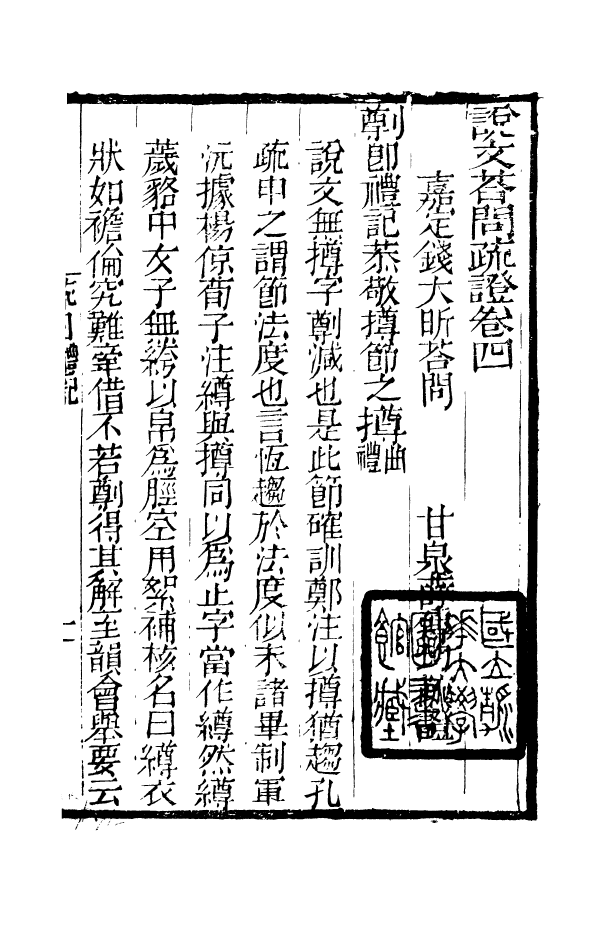 說文荅問疏證卷四
嘉定錢大昕荅問
甘泉薛傳均疏證
劕卽禮記恭敬撙節之撙曲禮
說文無撙字劕減也是此節確訓鄭注以撙猶趨孔
疏申之謂節法度也言恆趨於法度似未諸畢制軍
沅據楊倞荀子注繜與撙同以爲止字當作繜然繜
薉貉中女子無絝以帛爲脛空用絮補核名曰繜衣
狀如襜褕究難牽借不若劕得其解至韻會舉要云
國立
大學
館藏